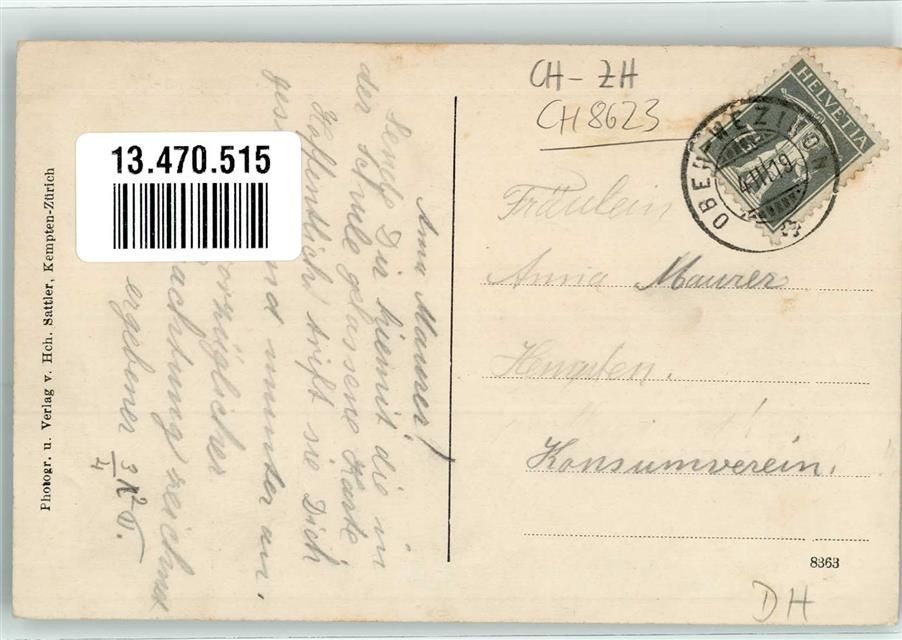 Photogr. u. Verlag v. Hch. Sattler, Kempten-Zürich
13.470.515
Anna Maurer!
Sende Dir hiemit die in
der Schule gelassene Karte
Hoffentlich trift sie Dich
ges und munter an.
vorzüglicher
achtung zeichnet
ergebener
CH - ZH
CH 8623
HELVETIA
OBER-WEZIKON
Fräulein
Anna Maurer
Kempten.
Konsumverein.
8363
DH